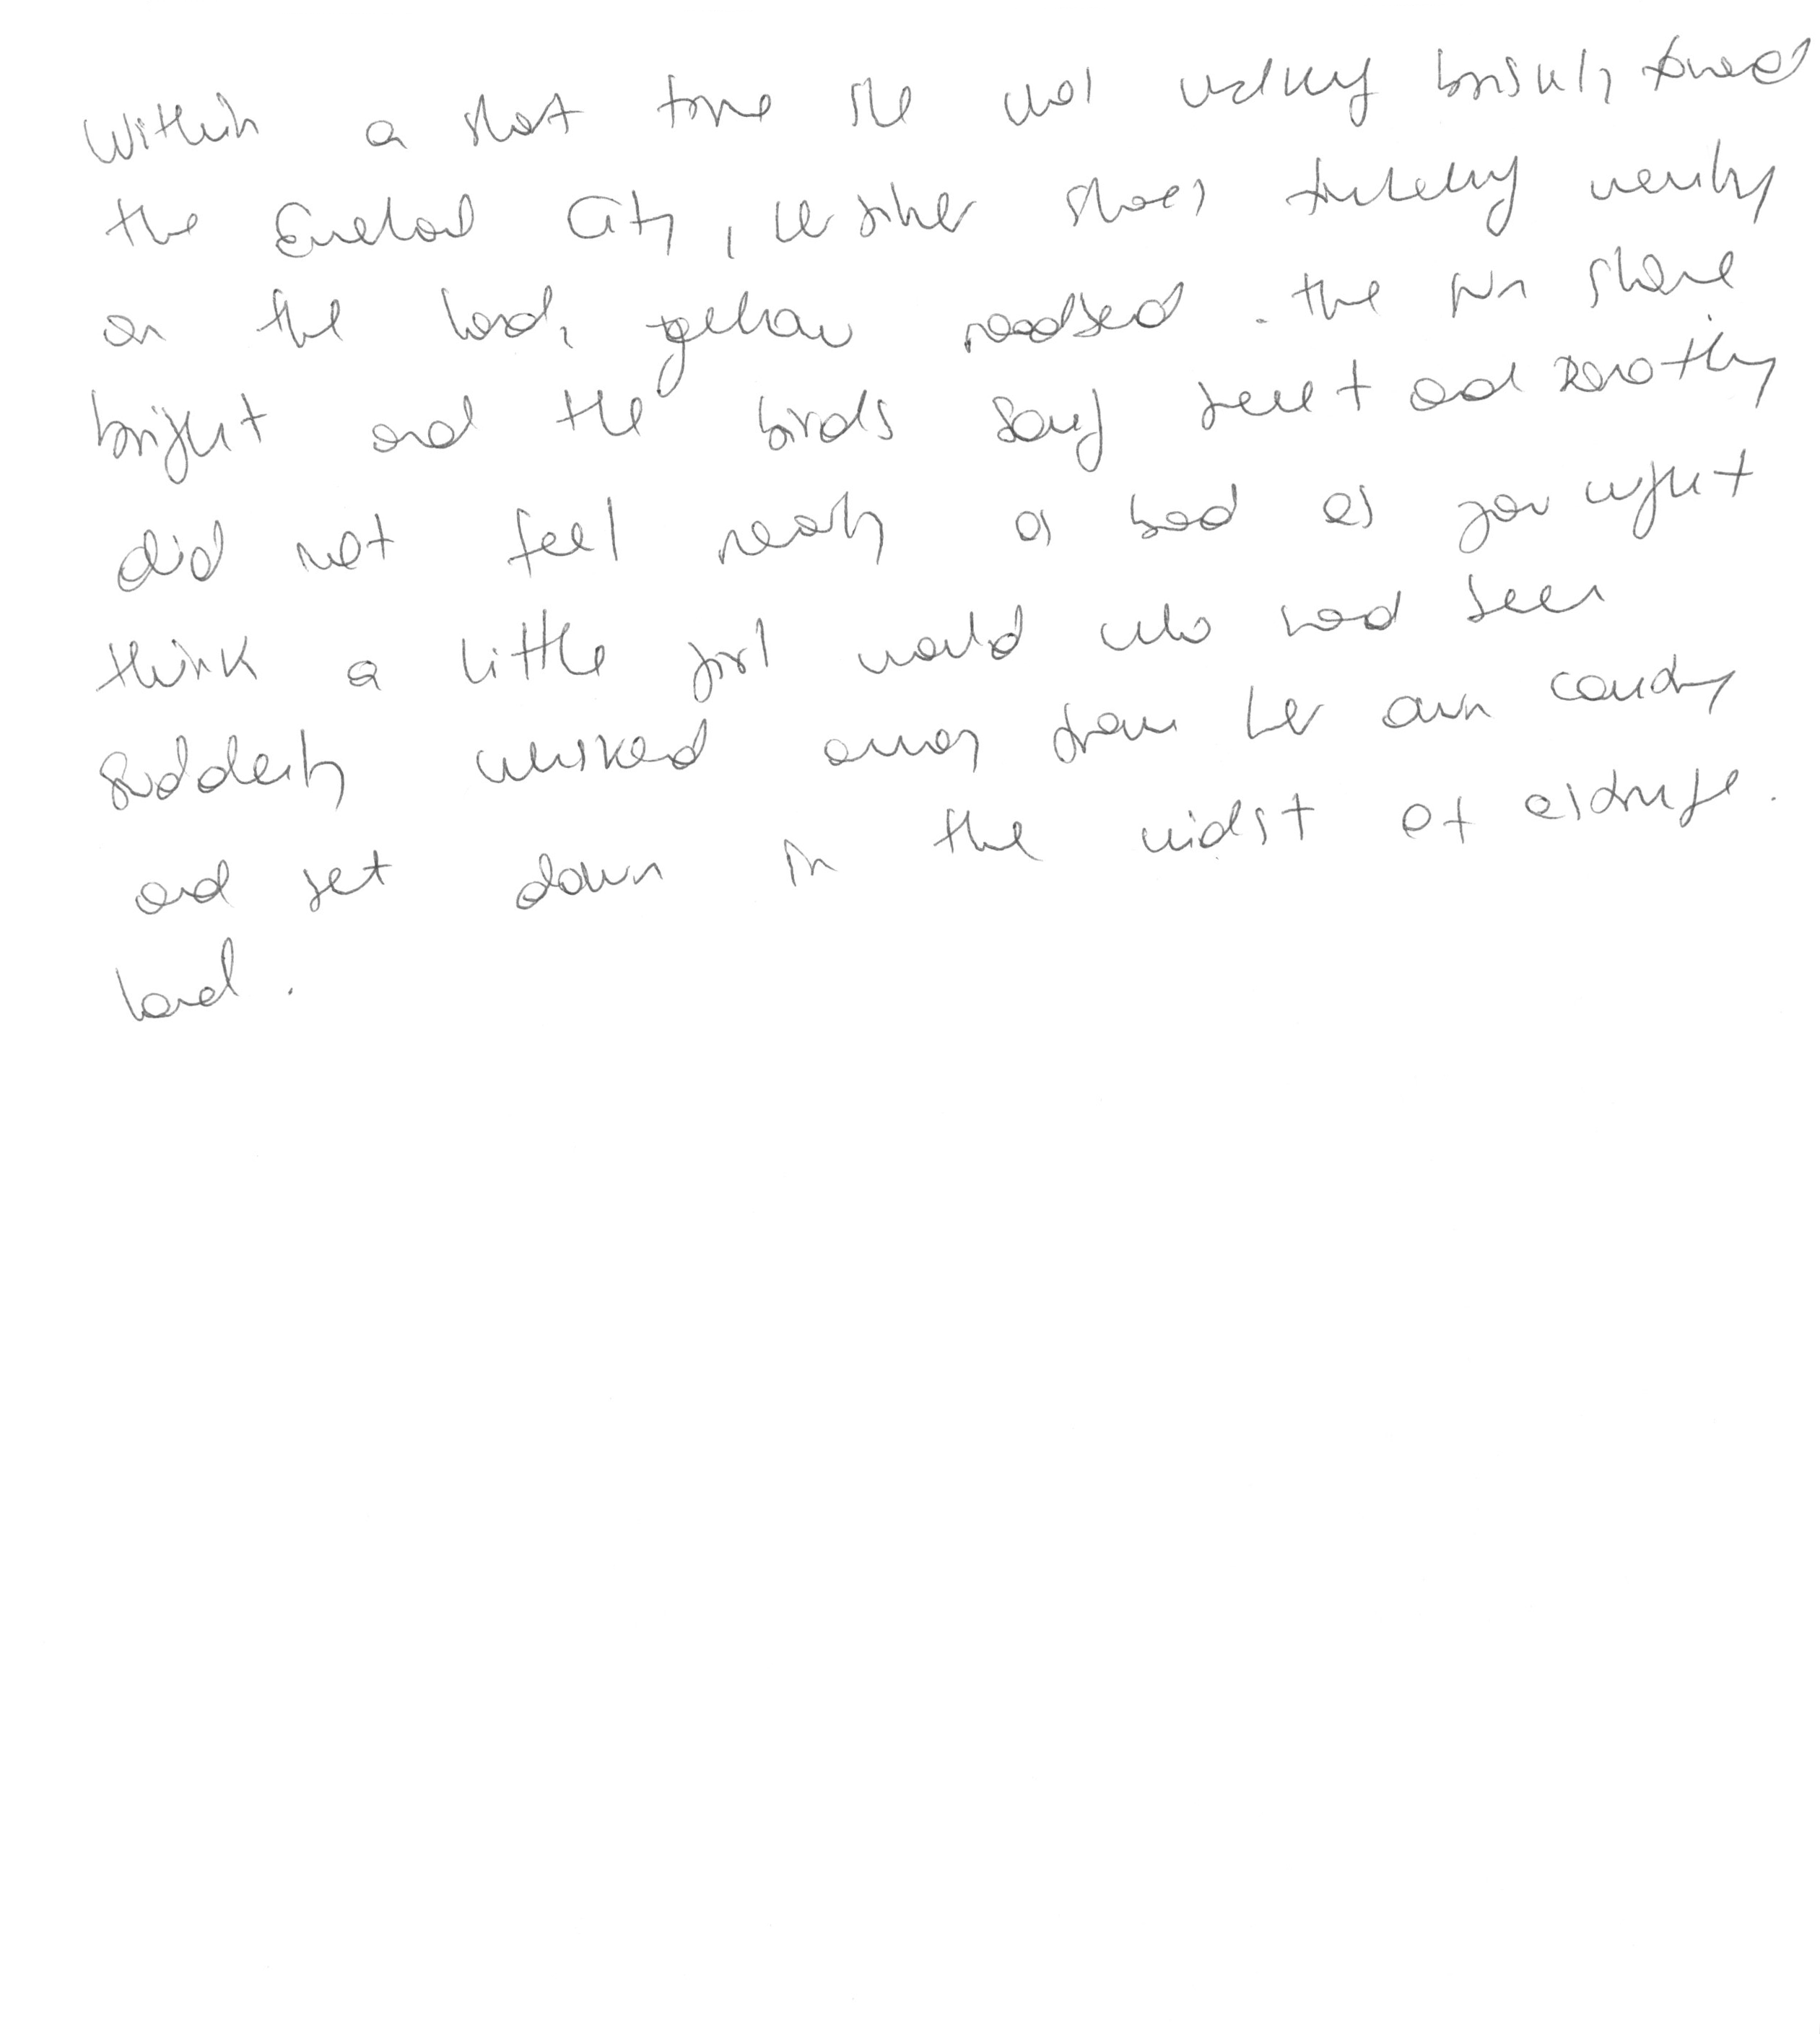 Within a short time she was walking briskly toward
the Emerald City, her silver shoes tinkling merrily
on the hard, yellow roadbed. the sun shone
bright and the birds sang sweet and Dorothy
did not feel nearly as bad as you might
think a little girl would who had been
suddenly whisked away from her own country
and set down in the midst of a strange.
land.